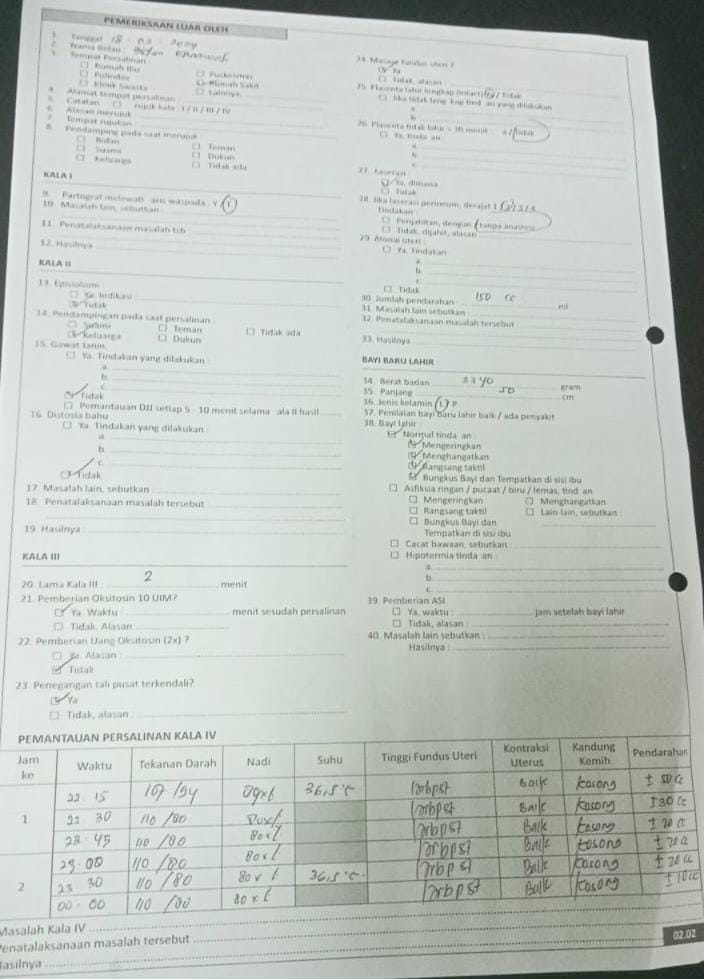 PEMERIKSAAN LUAR OLEH
1. Tanggal
2. Nama Bidan : Bidan
3. Tempat Persalinan :
☐ Rumah Ibu ☐ Puskesmas
☐ Polindes ☑ Rumah Sakit
☐ Klinik Swasta ☐ Lainnya
4. Alamat tempat persalinan
5. Catatan ☐ rujuk kala : I / II / III / IV
6. Alasan merujuk
7. Tempat rujukan
8. Pendamping pada saat merujuk
☐ Bidan ☐ Teman
☐ Suami ☐ Dukun
☐ Keluarga ☐ Tidak ada
KALA I
9. Partograf melewati garis waspada : Y / T
10. Masalah lain, sebutkan
11. Penatalaksanaan masalah tsb
12. Hasilnya
KALA II
13. Episiotomi
☐ Ya. Indikasi
☑ Tidak
14. Pendampingan pada saat persalinan
☐ Suami ☐ Teman ☐ Tidak ada
☑ Keluarga ☐ Dukun
15. Gawat Janin
☐ Ya. Tindakan yang dilakukan
a.
b.
c.
☑ Tidak
☐ Pemantauan DJJ setiap 5 - 10 menit selama kala II hasil
16. Distosia bahu
☐ Ya. Tindakan yang dilakukan :
a.
b.
c.
☑ Tidak
17. Masalah lain, sebutkan
18. Penatalaksanaan masalah tersebut
19. Hasilnya
KALA III
20. Lama Kala III : 2 menit
21. Pemberian Oksitosin 10 UIM?
☑ Ya. Waktu menit sesudah persalinan
☐ Tidak. Alasan
22. Pemberian Uang Oksitosin (2x) ?
☐ Ya. Alasan :
☑ Tidak
23. Penegangan tali pusat terkendali?
☑ Ya
☐ Tidak, alasan :
24. Masage fundus uteri ?
☑ Ya
☐ Tidak, alasan
25. Plasenta lahir lengkap (intact) Ya / Tidak
☐ Jika tidak lengkap tindakan yang dilakukan
a.
b.
26. Plasenta tidak lahir > 30 menit : Ya / Tidak
☐ Ya, tindakan
a.
b.
c.
27. Laserasi
☑ Ya, dimana
☐ Tidak
28. Jika laserasi perineum, derajat 1 / 2 / 3 / 4
Tindakan
☐ Penjahitan, dengan / tanpa anastesi
☐ Tidak, dijahit, alasan
29. Atonia uteri :
☐ Ya. Tindakan
a.
b.
c.
☐ Tidak
30. Jumlah pendarahan 150 cc ml
31. Masalah lain sebutkan
32. Penatalaksanaan masalah tersebut
33. Hasilnya
BAYI BARU LAHIR
34. Berat badan gram
35. Panjang 50 cm
36. Jenis kelamin L / P
37. Penilaian bayi baru lahir baik / ada penyakit
38. Bayi lahir
☑ Normal tinda an
☑ Mengeringkan
☑ Menghangatkan
☑ Rangsang taktil
☑ Bungkus Bayi dan Tempatkan di sisi ibu
☐ Asfiksia ringan / pucaat / biru / lemas, tind an
☐ Mengeringkan ☐ Menghangatkan
☐ Rangsang taktil ☐ Lain-lain, sebutkan
☐ Bungkus Bayi dan
Tempatkan di sisi ibu
☐ Cacat bawaan, sebutkan
☐ Hipotermia tinda an :
a.
b.
c.
39. Pemberian ASI
☐ Ya, waktu : jam setelah bayi lahir
☐ Tidak, alasan :
40. Masalah lain sebutkan :
Hasilnya :
PEMANTAUAN PERSALINAN KALA IV
Jam ke Waktu Tekanan Darah Nadi Suhu Tinggi Fundus Uteri Kontraksi Uterus Kandung Kemih Pendarahan
1 22 15 36,5°C 2rbpst Baik kosong ± 50 cc
22 30 110 /80 2rbpst Baik kosong
45 110 /80 80x/ 2rbpst Baik kosong ± 20 cc
00 110 /80 80x/ 2rbpst Baik kosong ± 20 cc
2 23 30 110 /80 80x/ 36,5°C 2rbpst Baik kosong ± 20 cc
00 - 00 110 /80 80x/ 2rbpst Baik kosong ± 10cc
Masalah Kala IV
Penatalaksanaan masalah tersebut
Hasilnya
02.02